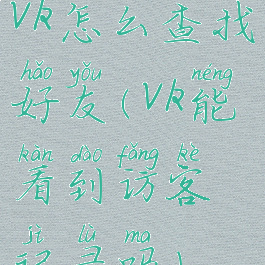 VR怎么查找
hǎo yǒu néng
好友(VR能
kàn dào fǎng kè
看到访客
jì lù ma
记录吗)